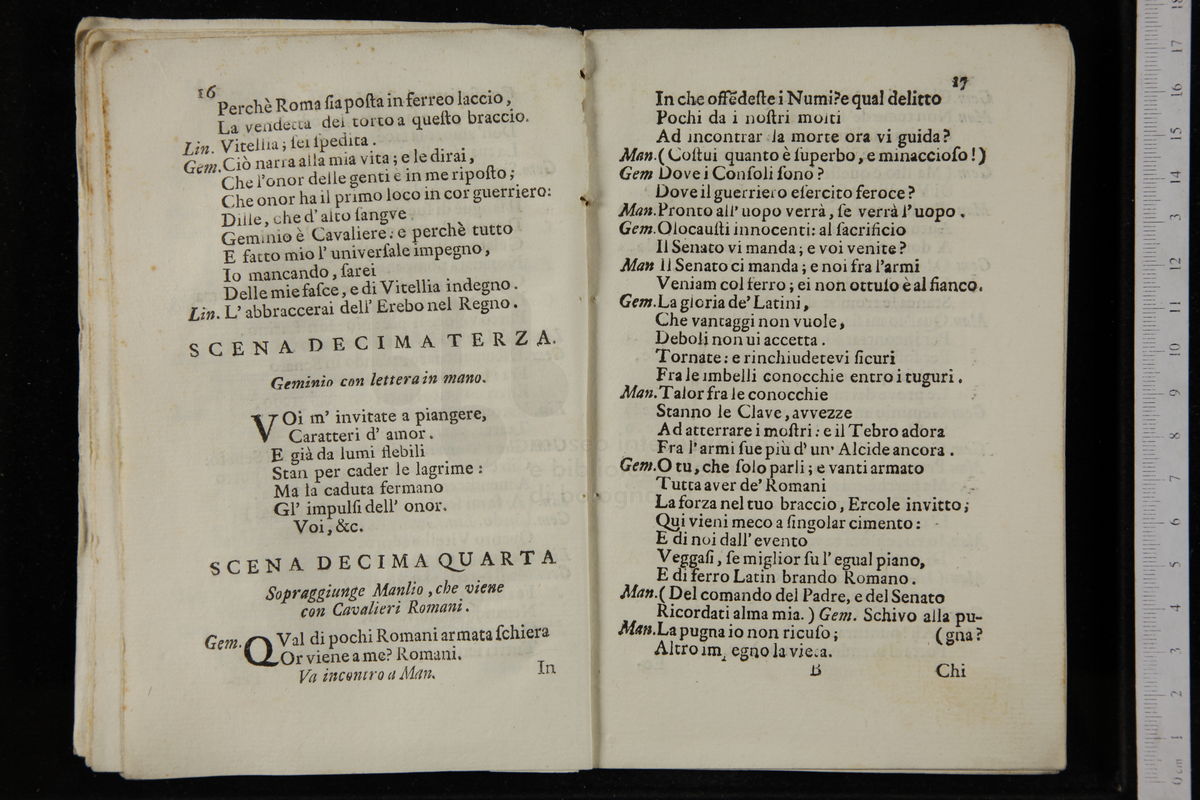 16
Perchè Roma ſia poſta in ferreo laccio,
La vendetta del torto a queſto braccio.
Lin. Vitellia; ſei ſpedita.
Gem. Ciò narra alla mia vita; e le dirai,
Che l'onor delle genti è in me ripoſto;
Che onor ha il primo loco in cor guerriero:
Dille, che d'alto ſangve
Geminio è Cavaliere: e perchè tutto
E fatto mio l'univerſale impegno,
Io mancando, ſarei
Delle mie faſce, e di Vitellia indegno.
Lin. L'abbraccerai dell'Erebo nel Regno.
SCENA DECIMATERZA.
Geminio con lettera in mano.
VOi m'invitate a piangere,
Caratteri d'amor.
E già da lumi flebili
Stan per cader le lagrime:
Ma la caduta fermano
Gl'impulſi dell'onor.
Voi, &c.
SCENA DECIMAQUARTA
Sopraggiunge Manlio, che viene
con Cavalieri Romani.
Gem. QVal di pochi Romani armata ſchiera
Or viene a me? Romani.
Va incontro a Man.
In
17
In che offēdeſte i Numi? e qual delitto
Pochi da i noſtri molti
Ad incontrar la morte ora vi guida?
Man. (Coſtui quanto è ſuperbo, e minaccioſo!)
Gem Dove i Conſoli ſono?
Dove il guerriero eſercito feroce?
Man. Pronto all'uopo verrà, ſe verrà l'uopo.
Gem. Olocauſti innocenti: al ſacrificio
Il Senato vi manda; e voi venite?
Man Il Senato ci manda; e noi fra l'armi
Veniam col ferro; ei non ottuſo è al fianco.
Gem. La gloria de' Latini,
Che vantaggi non vuole,
Deboli non ui accetta.
Tornate: e rinchiudetevi ſicuri
Fra le imbelli conocchie entro i tuguri.
Man. Talor fra le conocchie
Stanno le Clave, avvezze
Ad atterrare i moſtri: e il Tebro adora
Fra l'armi ſue più d'un' Alcide ancora.
Gem. O tu, che ſolo parli; e vanti armato
Tutta aver de' Romani
La forza nel tuo braccio, Ercole invitto;
Qui vieni meco a ſingolar cimento:
E di noi dall'evento
Veggaſi, ſe miglior ſu l'egual piano,
E di ferro Latin brando Romano.
Man. (Del comando del Padre, e del Senato
Ricordati alma mia.) Gem. Schivo alla pu-
Man. La pugna io non ricuſo; (gna?
Altro la vieta.
B
Chi